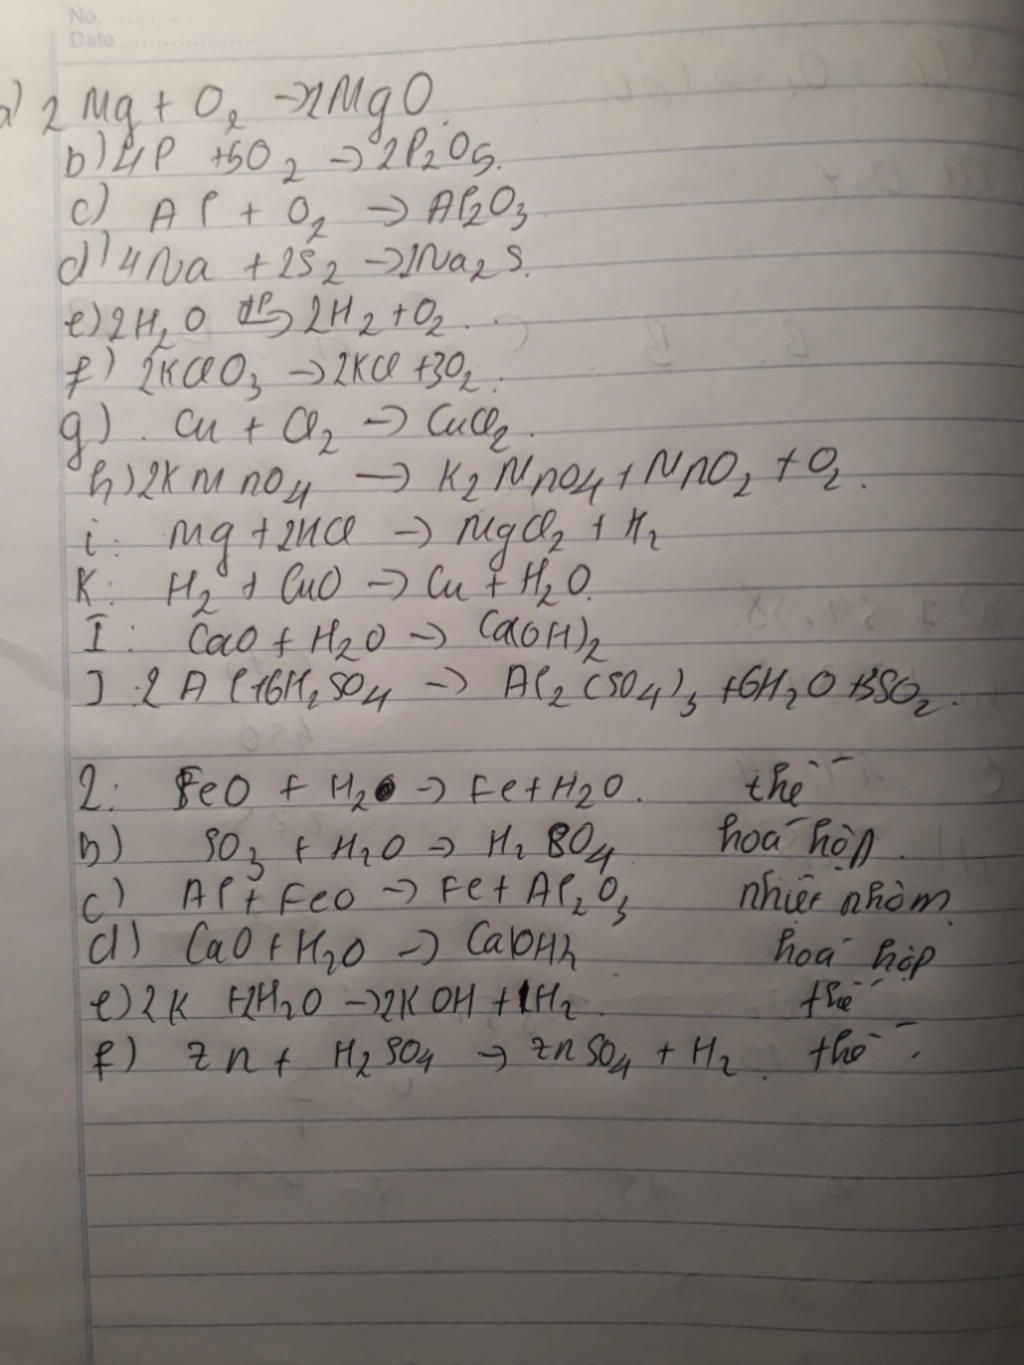 No. ..........
Date ....................
a) 2 Mg + O2 → 2MgO.
b) 4P + 5O2 → 2P2O5.
c) Al + O2 → Al2O3.
d) 4Na + 2S2 → 2Na2S.
e) 2H2O đp→ 2H2 + O2.
f) 2KClO3 → 2KCl + 3O2.
g). Cu + Cl2 → CuCl2.
h) 2KMnO4 → K2MnO4 + MnO2 + O2.
i: Mg + 2HCl → MgCl2 + H2
K: H2 + CuO → Cu + H2O.
I: CaO + H2O → Ca(OH)2
J: 2Al + 6H2SO4 → Al2(SO4)3 + 6H2O + 3SO2.
2: FeO + H2 → Fe + H2O. thế
b) SO3 + H2O → H2SO4 hoá hợp.
c) Al + FeO → Fe + Al2O3 nhiệt nhôm.
d) CaO + H2O → Ca(OH)2 hoá hợp
e) 2K + 2H2O → 2KOH + 1H2. thế
f) Zn + H2SO4 → ZnSO4 + H2. thế.